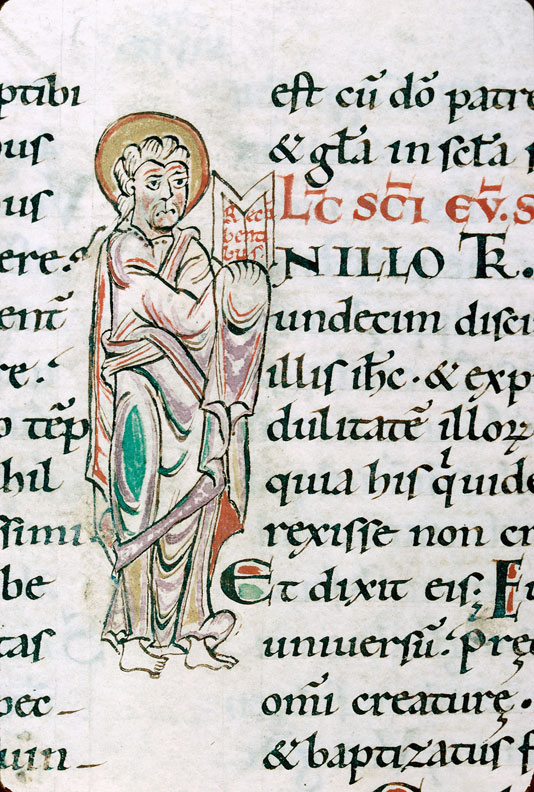 ptibi
us
us
ere.
entē
re.
o tēp
hil
ssimi
be
tas
pec-
uin-
Recū
benti
bus
est cū dō patre
& gła in scła s
LC̄ SC̄I EV̄. S
IN ILLO TR̄.
undecim disci
illis ih̄c. & exp
dulitatē illoꝝ
quia his qͥuide
rexisse non cr
Et dixit eis; Eu
universū. Pręd
omi creaturę.
& baptizatus f